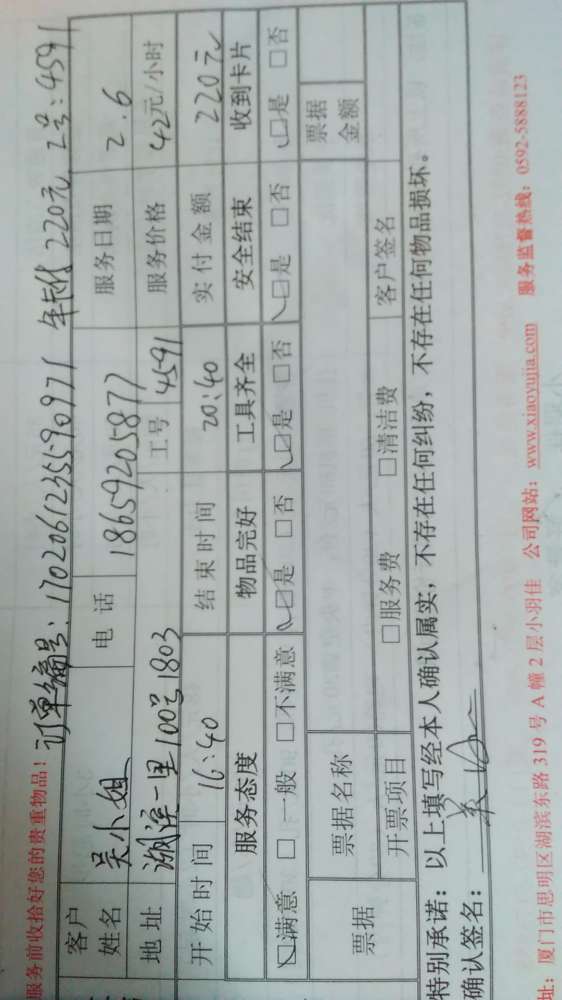 服务前收拾好您的贵重物品！ 订单编号：170206123559097 1 年卡付 220元 工号：4591
客户姓名 吴小姐 电 话 18659205877 服务日期 2.6
地 址 湖滨一里100号1803 工号 4591 服务价格 42元/小时
开始时间 16:40 结束时间 20:40 实付金额 220元
服务态度 物品完好 工具齐全 安全结束 收到卡片
☑满意 □一般 □不满意 ☑是 □否 ☑是 □否 ☑是 □否 ☑是 □否
票据 票据名称 票据金额
开票项目 □服务费 □清洁费 客户签名
特别承诺：以上填写经本人确认属实，不存在任何纠纷，不存在任何物品损坏。
确认签名：
址：厦门市思明区湖滨东路 319 号 A 幢 2 层小羽佳 公司网站：www.xiaoyujia.com 服务监督热线：0592-5888123